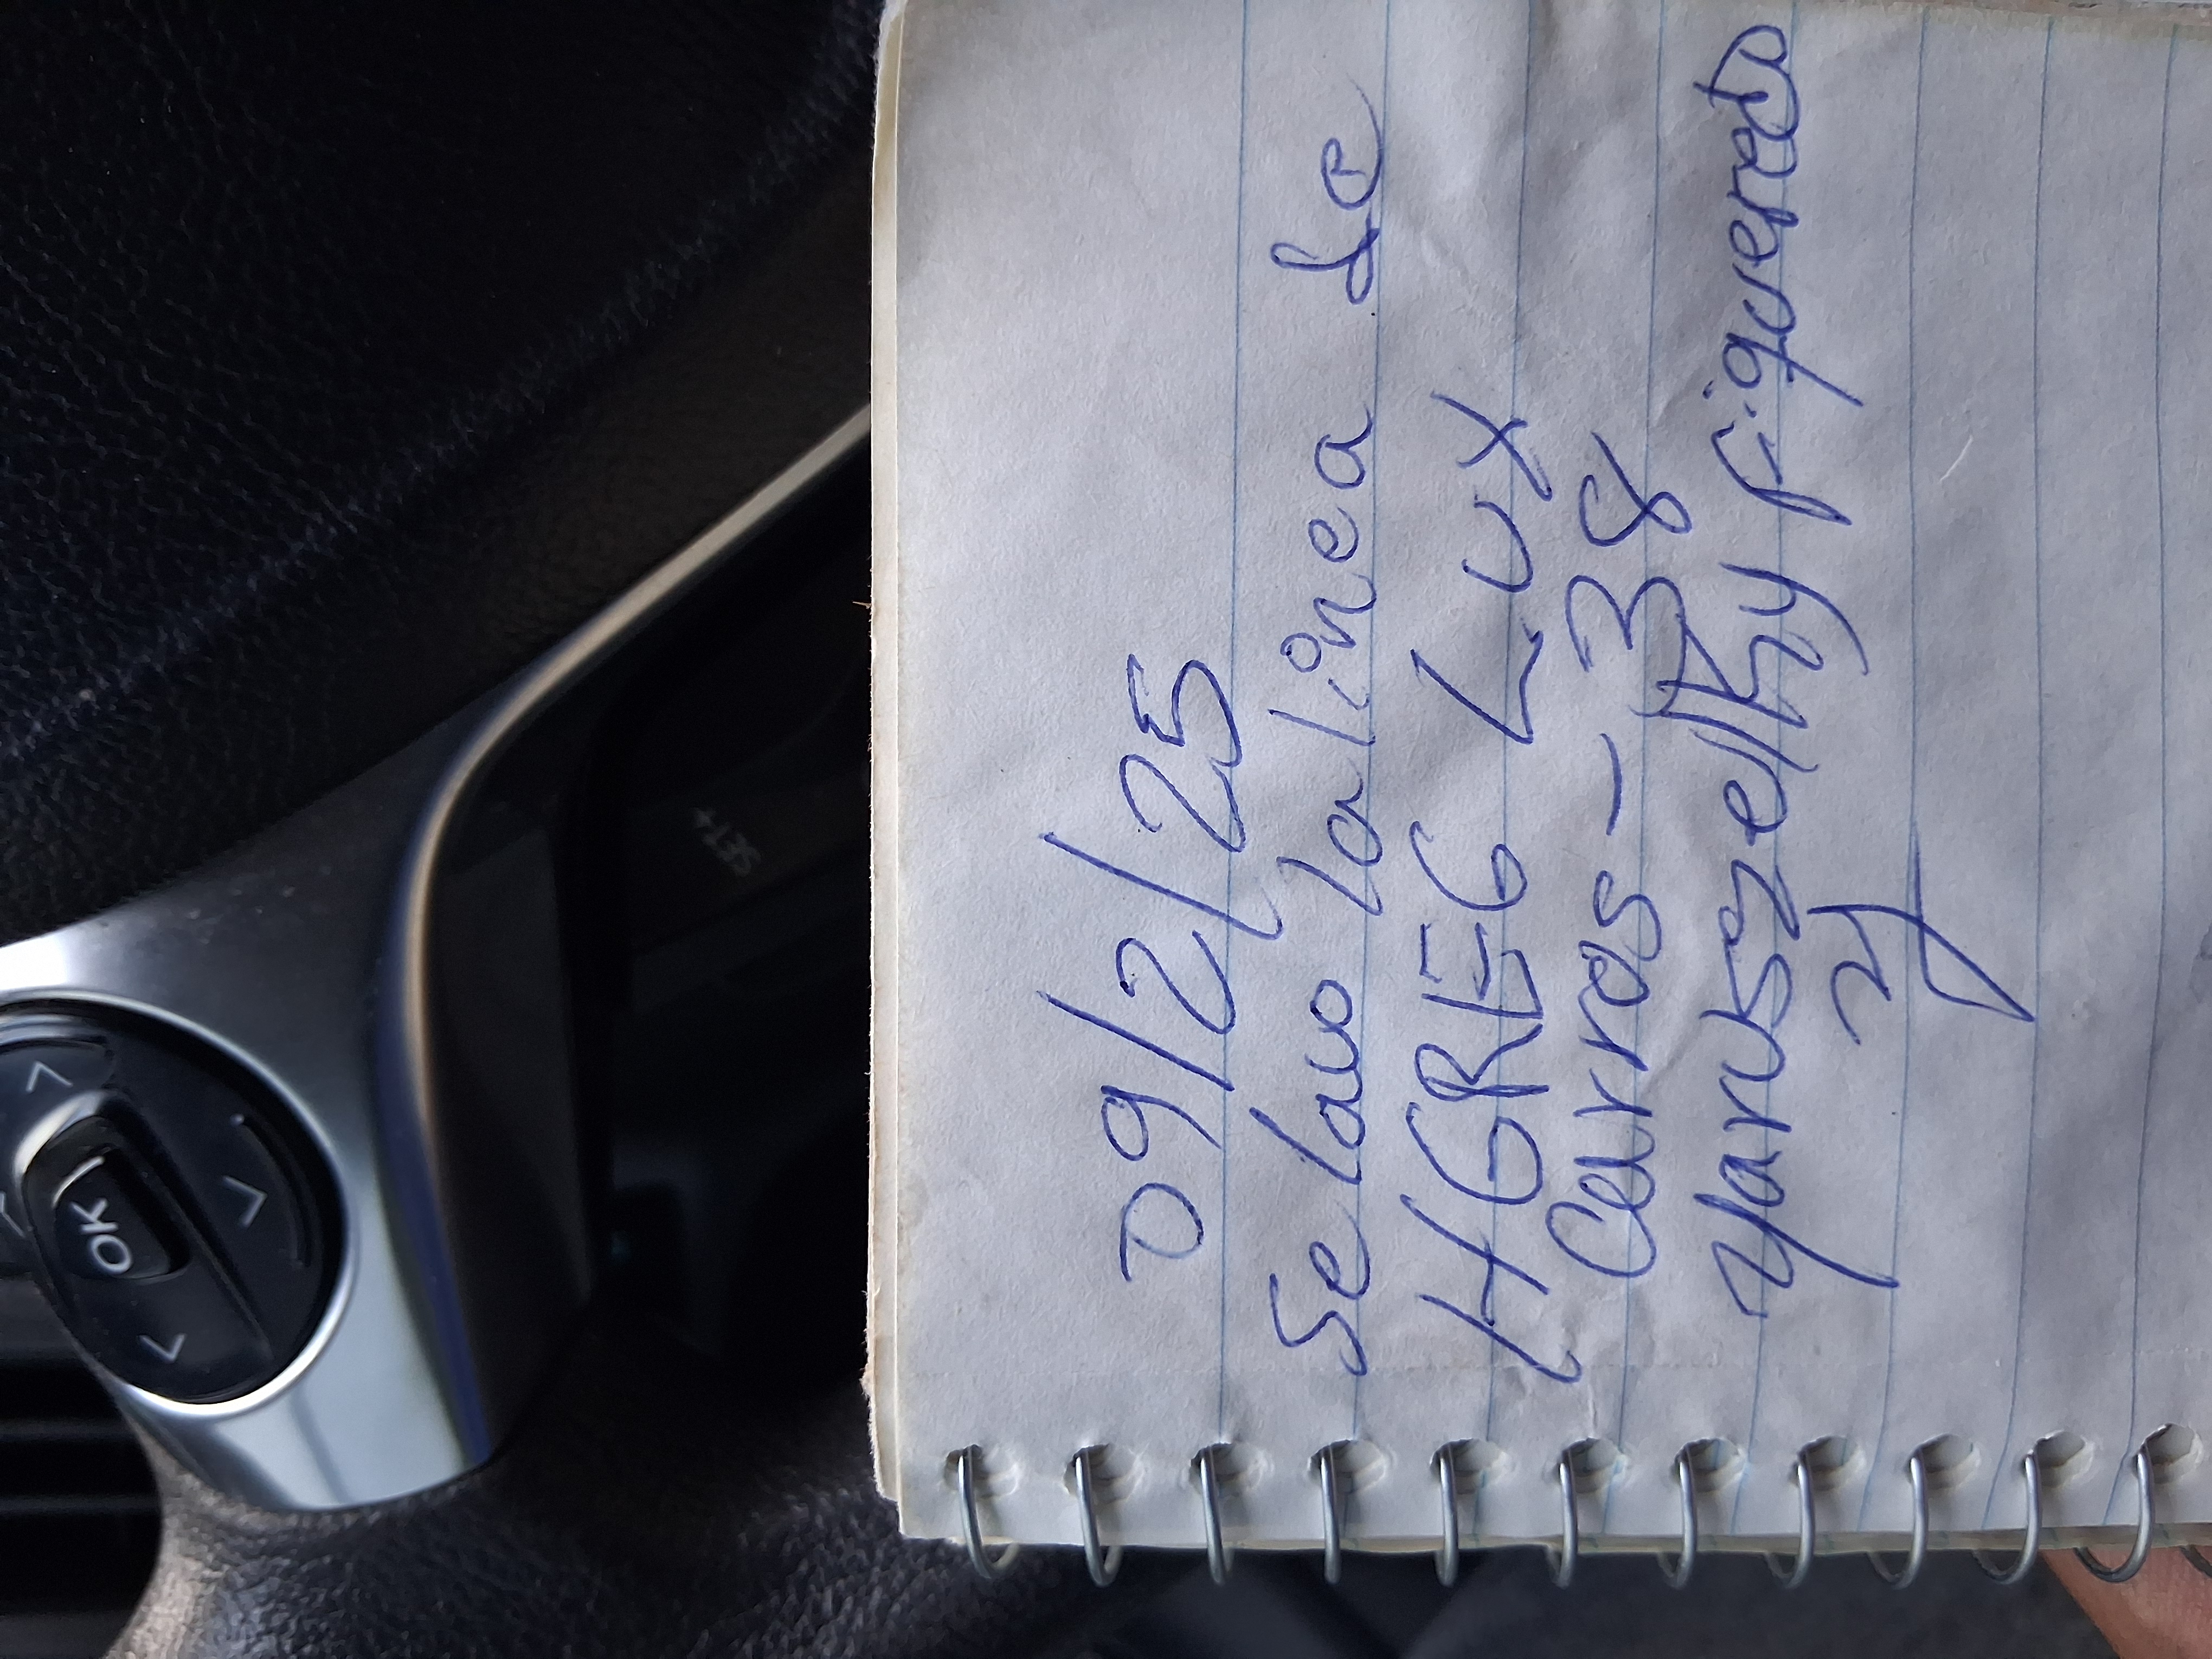 09/2/25
Se lavo la linea de
HGREG LUX
Carros - 38
Yaruszelky figueredo
OK
SET+